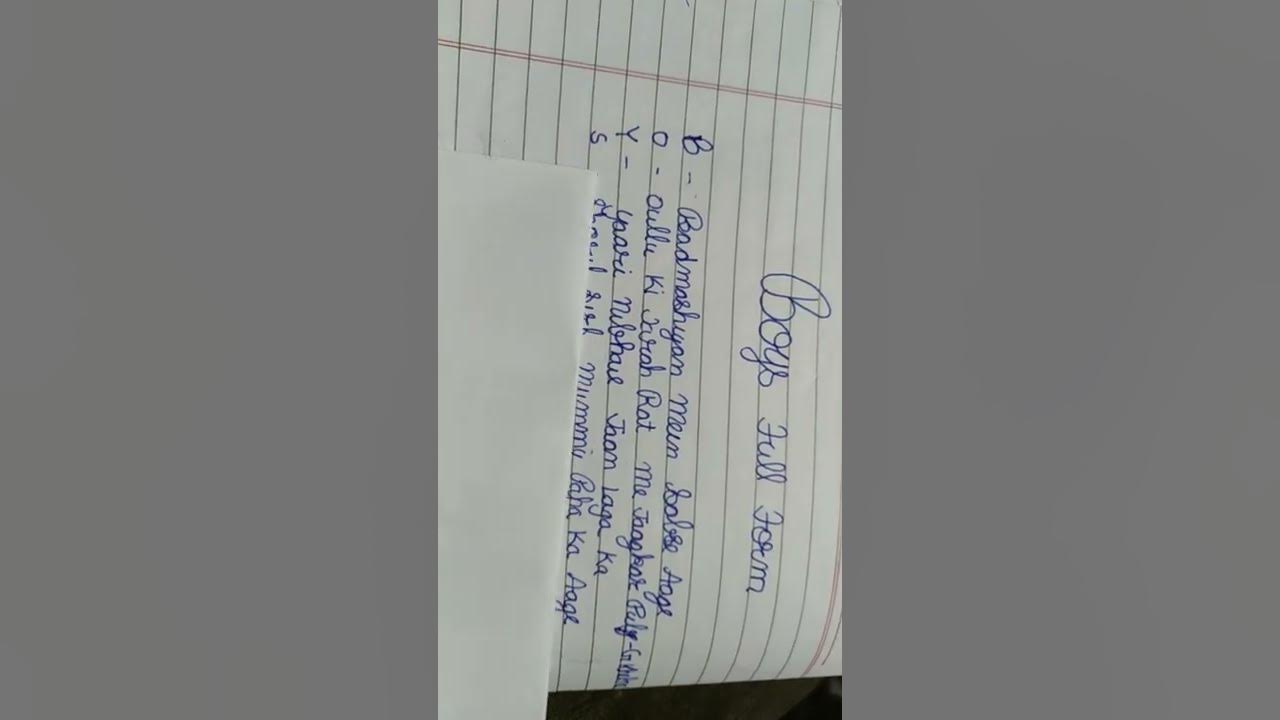 Boys Full Form
B - Badmashiyan Mein Sabse Aage
O - Oullu Ki Tarah Rat Me Jaagkar Pubg
Y - Yaari Nibhaue Jaan Laga Ka
S Mummy Papa Ka Aage